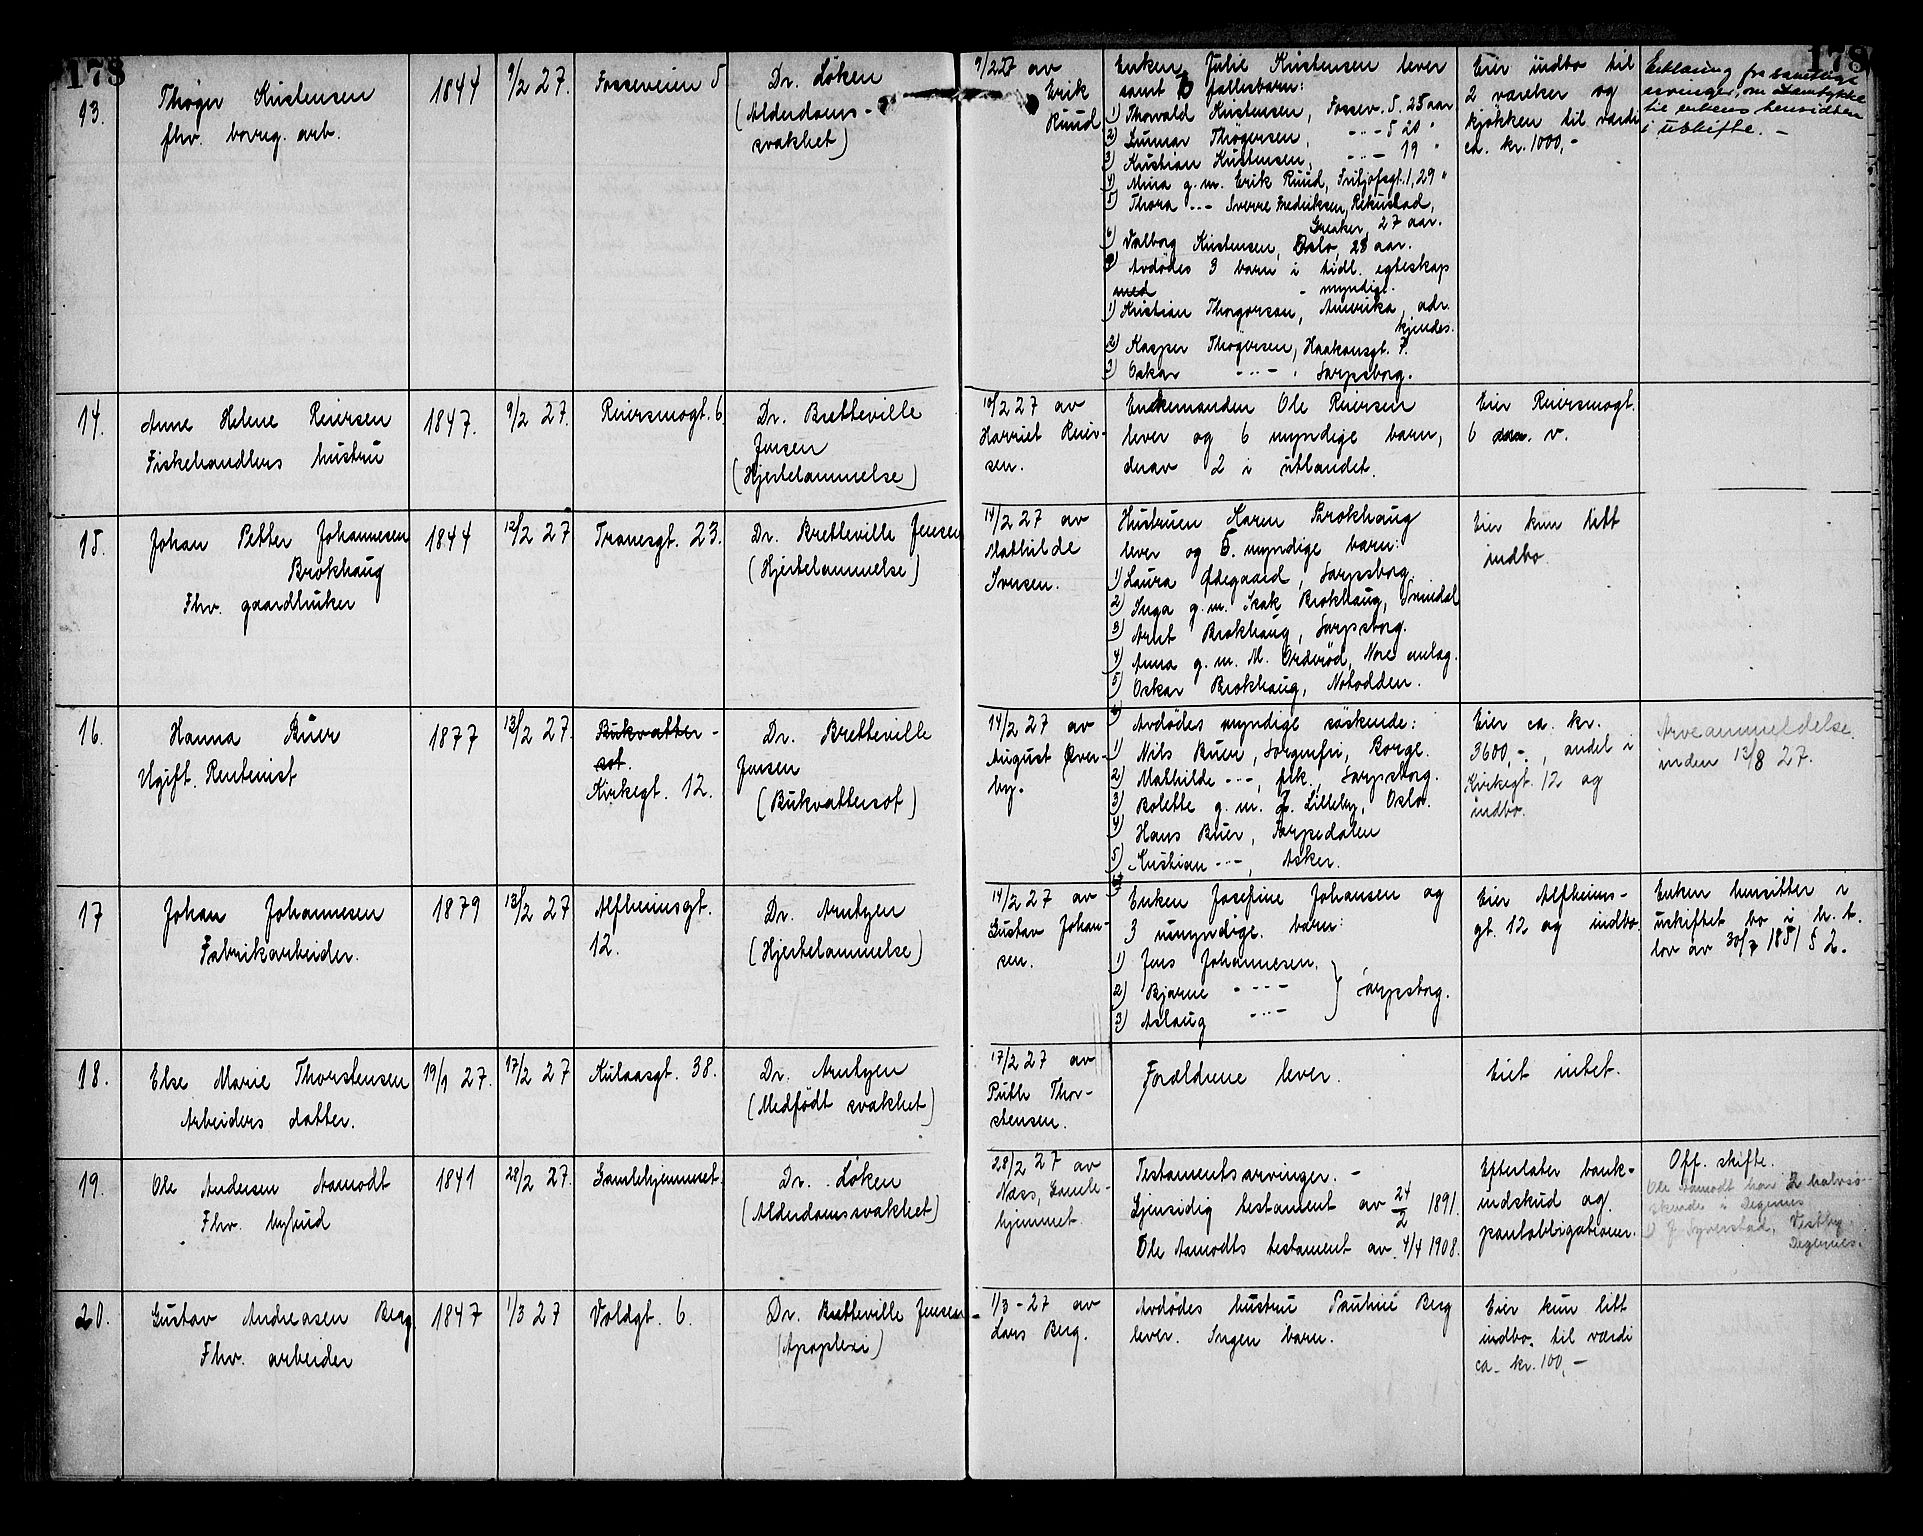 178
178
13.
Thøger Kristensen
fhv. borrig. arb.
1844
9/2 27.
Fosseveien 5
Dr. Løken
(Alderdoms-
svakhet)
9/2 27 av
Erik
Ruud
Enken Julie Kristensen lever
samt 6 fællesbarn:
1) Thorvald Kristensen, Fossev. 5. 25 aar
2) Gunnar Thøgersen, -"- 5 20 "
3) Kristian Kristensen, -"- 19 "
4) Mina g.m. Erik Ruud, Fritjofsgt. 1, 29 "
5) Thora -"- Sverre Fredriksen, Rekustad,
Greaker, 27 aar.
6) Valborg Kristensen, Oslo, 28 aar.
Avdødes 3 barn i tidl. egteskap
med - myndige.
1) Kristian Thøgersen, Amerika, adr.
kjendes.
2) Kasper Thøgersen, Haakonsgt. 7.
3) Oskar -"- , Sarpsborg.
Eier indbo til
2 værelser og
kjøkken til værdi
ca. kr. 1000,-
Erklæring fra samtlige
arvinger, om samtykke
til enkens hensidden
i uskifte. -
14.
Anne Helene Reiersen
Fiskehandlers hustru
1847.
9/2 27.
Reiersmogt. 6
Dr. Bretteville
Jensen
(Hjertelammelse)
10/2 27 av
Harriet Reier-
sen.
Enkemanden Ole Reiersen
lever og 6 myndige barn,
derav 2 i utlandet.
Eier Reiersmogt.
6 m. v.
15.
Johan Petter Johannesen
Brokhaug
Fhv. gaardbruker
1844
12/2 27
Tranesgt. 23.
Dr. Bretteville Jensen
(Hjertelammelse)
14/2 27 av
Mathilde
Iversen.
Hustruen Karen Brokhaug
lever og 5. myndige barn:
1) Laura Ødegaard, Sarpsborg.
2) Inga g.m. Isak Brokhaug,
3) Arnt Brokhaug, Sarpsborg.
4) Anna g.m. M. Orderød, Nore anlæg.
5) Oskar Brokhaug, Notodden.
Eier kun litt
indbo.
16.
Hanna Buer
Ugift. Rentenist
1877
13/2 27
Bukvatter-
sot.
Kirkegt. 12.
Dr. Bretteville
Jensen
(Bukvattersot)
14/2 27 av
August Øver-
by.
Avdødes myndige søskende:
1) Nils Buer, Sorgenfri, Borge.
2) Mathilde -"-, frk., Sarpsborg.
3) Bolette g.m. J. Lilleby, Oslo.
4) Hans Buer, Sarpedalen
5) Kristian -"-, Asker.
Eier ca. kr.
3600,-, andel i
Kirkegt. 12 og
indbo.
Arveanmeldelse.
inden 13/8 27.
17
Johan Johannesen
Fabrikarbeider.
1879
13/2 27
Alfheimsgt.
12.
Dr. Arntzen
(Hjertelammelse)
14/2 27 av
Gustav Johan-
sen.
Enken Josefine Johansen og
3 umyndige. barn:
1) Jens Johannesen.
2) Bjarne -"- } Sarpsborg.
3) Aslaug -"-
Eier Alfheims-
gt. 12 og indbo.
Enken hensitter i
uskiftet bo i h. t.
lov av 30/7 1851 § 2.
18.
Else Marie Thorstensen
Arbeiders datter.
19/1 27.
17/2 27
Kulaasgt. 38.
Dr. Arntzen
(Medfødt svakhet)
17/2 27 av
Ruth Thor-
stensen.
Forældrene lever.
Eiet intet.
19.
Ole Andersen Aamodt
Fhv. bybud
1841
28/2 27.
Gamlehjemmet.
Dr. Løken
(Alderdomssvakhet)
28/2 27 av
Næss, Gamle-
hjemmet.
Testamentsarvinger. -
Gjensidig testament av 24/2 1891.
Ole Aamodts testament av 4/4 1908.
Efterlater bank-
indskud og
pantobligationer.
Off. skifte.
Ole Aamodt har 2 halvsø-
skende i Degernes
1) J. Syverstad, Vestby
Degernes.
20.
Gustav Andreasen Berg.
Fhv. arbeider
1847
1/3 27
Voldgt. 6.
Dr. Bretteville Jensen
(Apoplexi)
1/3 - 27 av
Lars Berg.
Avdødes hustru Pauline Berg
lever. Ingen barn.
Eier kun litt
indbo til værdi
ca. kr. 100,-